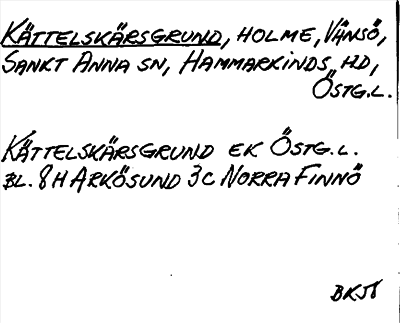 KÄTTELSKÄRSGRUND, HOLME, VÄNSÖ,
SANKT ANNA SN, HAMMARKINDS HD,
ÖSTG.L.
KÄTTELSKÄRSGRUND EK ÖSTG.L.
BL. 8H ARKÖSUND 3C NORRA FINNÖ